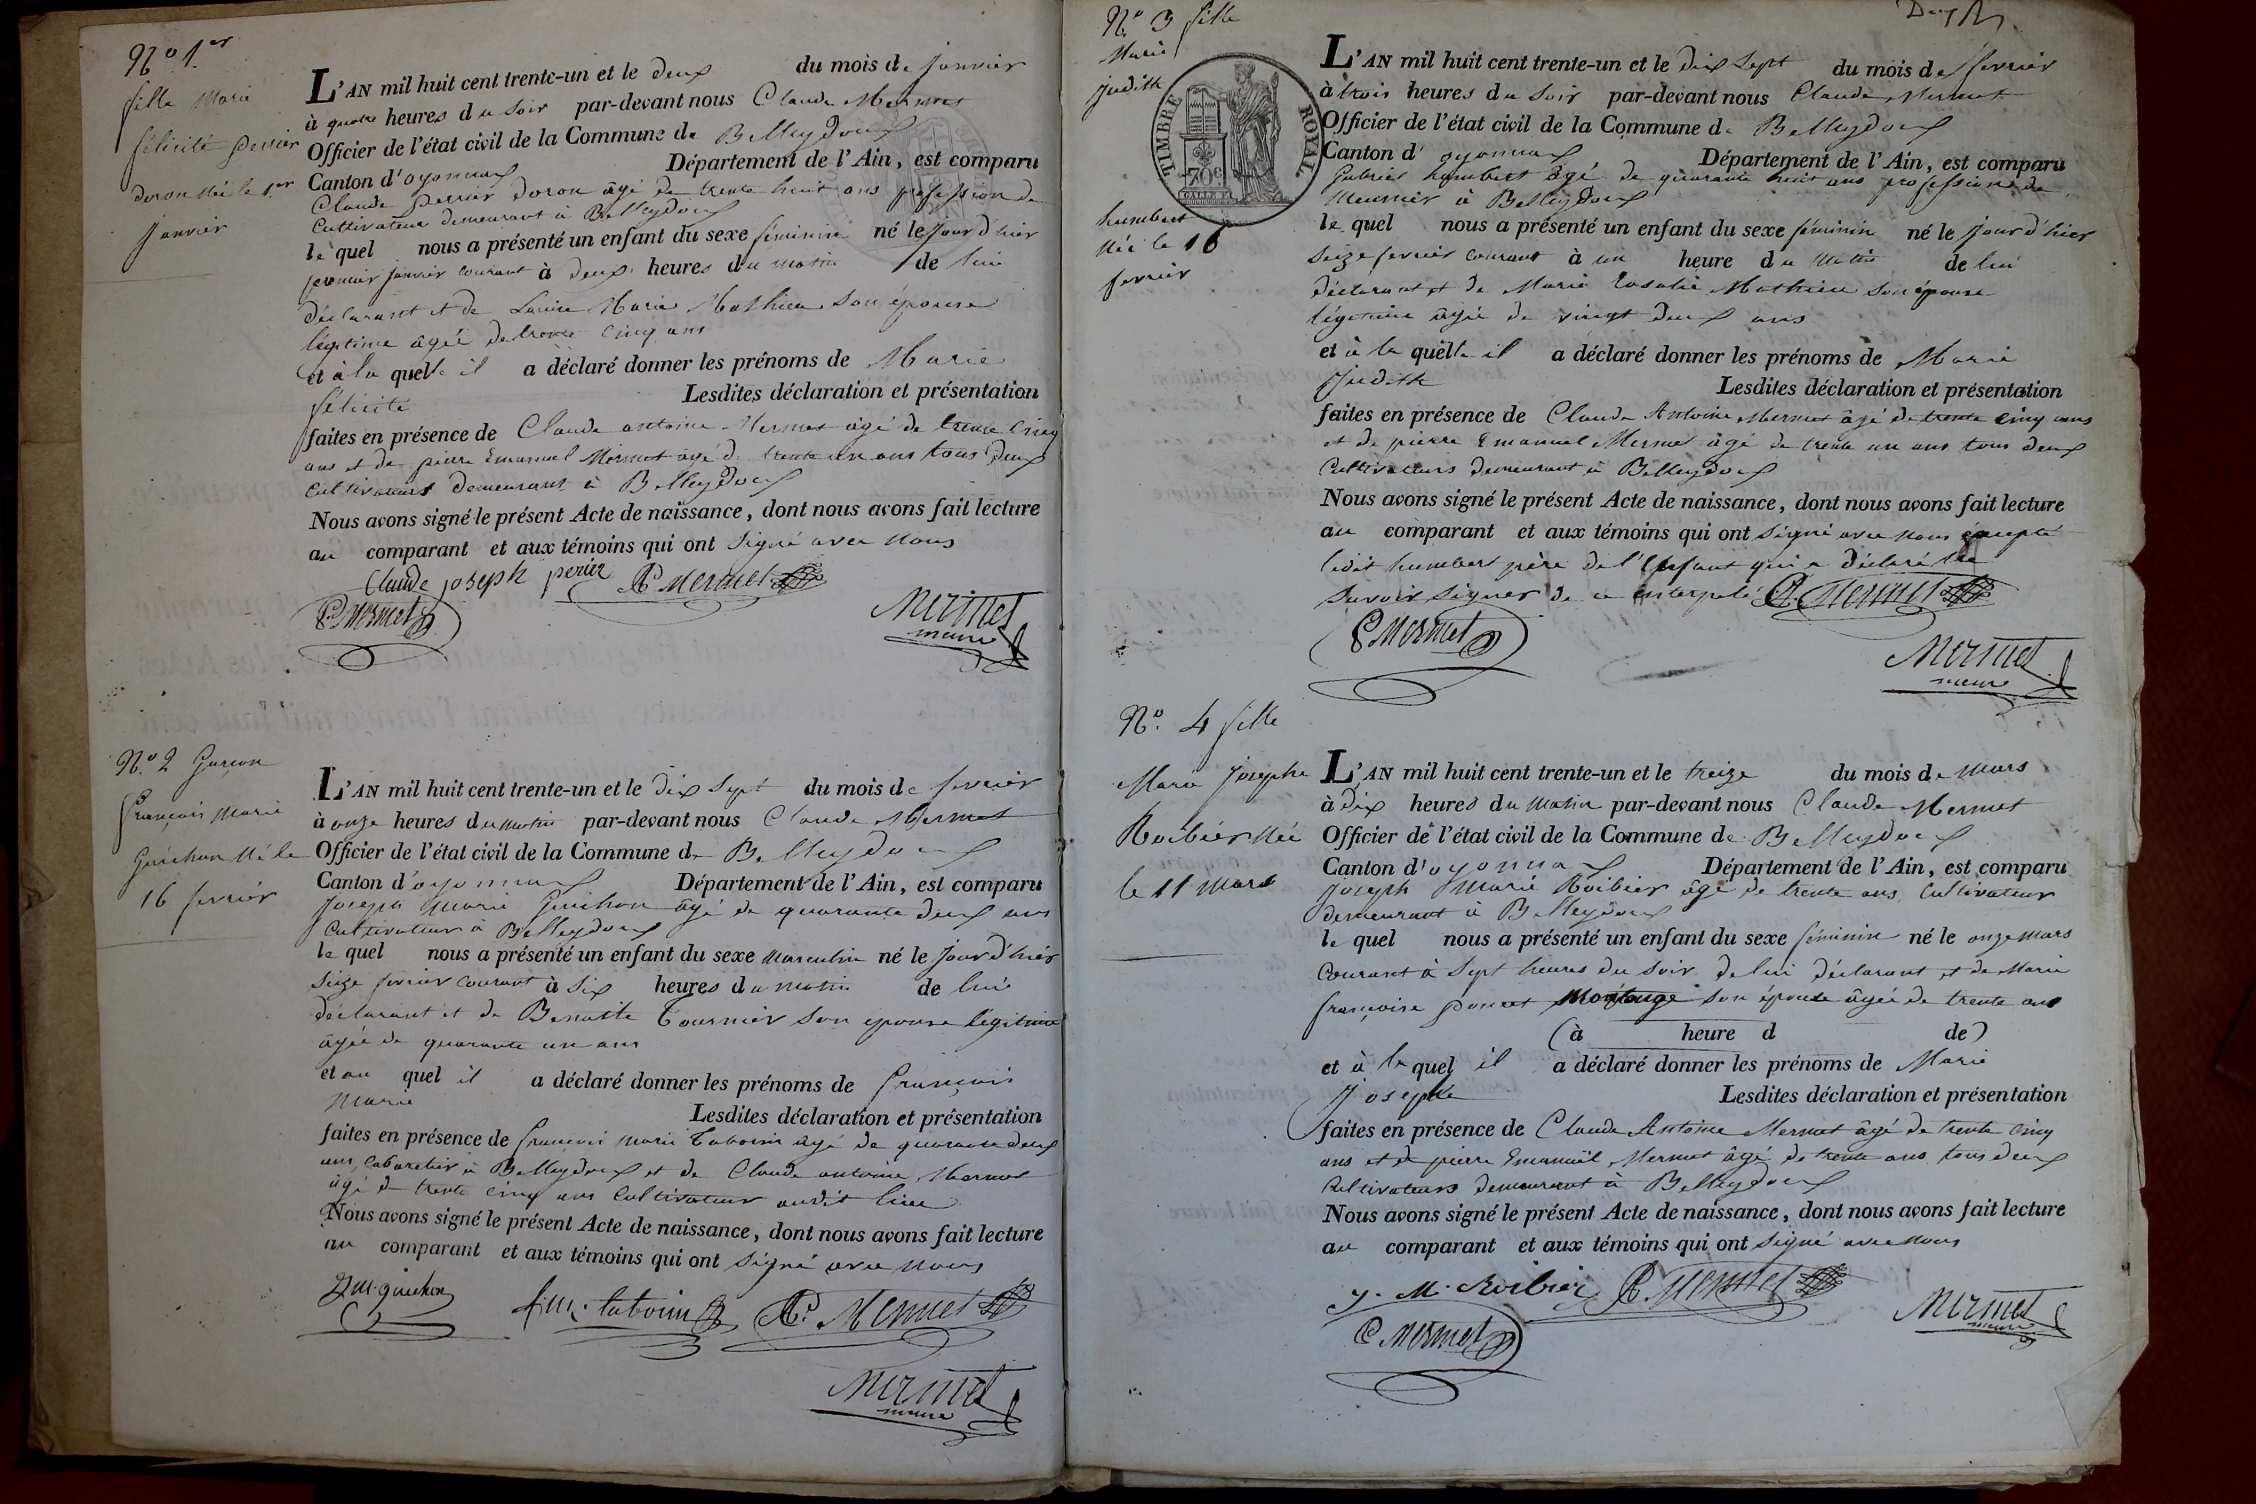 N.º 1.er
fille Marie
félicité perrier
doron née le 1.er
janvier
L'AN mil huit cent trente-un et le deux du mois de janvier
à quatre heures du soir par-devant nous Claude Mermet
Officier de l'état civil de la Commune de Belleydoux
Canton d'oyonnax Département de l'Ain, est comparu
Claude perrier doron âgé de trente huit ans profession de
Cultivateur demeurant à Belleydoux
le quel nous a présenté un enfant du sexe féminin né le jour d'hier
premier janvier courant à deux heures du matin de lui
déclarant et de Marie Mathieu son épouse
légitime âgée de trente cinq ans
et à la quelle il a déclaré donner les prénoms de Marie
félicité Lesdites déclaration et présentation
faites en présence de Claude antoine Mermet âgé de trente cinq
ans et de pierre Emanuel Mermet âgé de trente un ans tous deux
Cultivateurs demeurant à Belleydoux
Nous avons signé le présent Acte de naissance, dont nous avons fait lecture
au comparant et aux témoins qui ont signé avec nous
Claude joseph perier CA Mermet
PE Mermet
Mermet
maire
N.º 2 Garçon
françois marie
Guichon né le
16 fevrier
L'AN mil huit cent trente-un et le dix sept du mois de fevrier
à onze heures du matin par-devant nous Claude Mermet
Officier de l'état civil de la Commune de Belleydoux
Canton d'oyonnax Département de l'Ain, est comparu
Joseph marie Guichon âgé de quarante deux ans
Cultivateur à Belleydoux
le quel nous a présenté un enfant du sexe masculin né le jour d'hier
seize fevrier courant à six heures du matin de lui
déclarant et de Benoitte Tournier son epouse légitime
âgée de quarante un ans
et au quel il a déclaré donner les prénoms de françois
marie Lesdites déclaration et présentation
faites en présence de françois marie Tabourin âgé de quarante deux
ans, Cabaretier à Belleydoux et de Claude antoine Mermet
âgé de trente cinq ans Cultivateur audit lieu
Nous avons signé le présent Acte de naissance, dont nous avons fait lecture
au comparant et aux témoins qui ont signé avec nous
J M. guichon f. m. tabourin CA. Mermet
Mermet
maire
N.º 3 fille
Marie
judith
humbert
née le 16
fevrier
TIMBRE ROYAL
70 c
L'AN mil huit cent trente-un et le dix sept du mois de fevrier
à trois heures du soir par-devant nous Claude Mermet
Officier de l'état civil de la Commune de Belleydoux
Canton d'oyonnax Département de l'Ain, est comparu
Gabriel humbert âgé de quarante huit ans profession de
Meunier à Belleydoux
le quel nous a présenté un enfant du sexe féminin né le jour d'hier
seize fevrier courant à un heure du matin de lui
déclarant et de Marie Rosalie Mathieu son épouse
légitime âgée de vingt deux ans
et à la quelle il a déclaré donner les prénoms de Marie
Judith Lesdites déclaration et présentation
faites en présence de Claude Antoine Mermet âgé de trente cinq ans
et de pierre Emanuel Mermet âgé de trente un ans tous deux
Cultivateurs demeurant à Belleydoux
Nous avons signé le présent Acte de naissance, dont nous avons fait lecture
au comparant et aux témoins qui ont signé avec nous excepté
ledit humbert père de l'enfant qui a déclaré ne
savoir signer de ce interpelé CA. Mermet
PE Mermet
Mermet
maire
N.º 4 fille
Marie josephe
Roibier née
le 11 mars
L'AN mil huit cent trente-un et le treize du mois de mars
à dix heures du matin par-devant nous Claude Mermet
Officier de l'état civil de la Commune de Belleydoux
Canton d'oyonnax Département de l'Ain, est comparu
Joseph Marie Roibier âgé de trente ans, Cultivateur
demeurant à Belleydoux
le quel nous a présenté un enfant du sexe féminin né le onze mars
Courant à sept heures du soir de lui déclarant et de Marie
françoise poncet montange son épouse âgée de trente ans
(à heure d de)
et à la quel il a déclaré donner les prénoms de Marie
Josephe Lesdites déclaration et présentation
faites en présence de Claude Antoine Mermet âgé de trente cinq
ans et de pierre Emanuël Mermet âgé de trente ans tous deux
Cultivateurs demeurant à Belleydoux
Nous avons signé le présent Acte de naissance, dont nous avons fait lecture
au comparant et aux témoins qui ont signé avec nous
J. M. Roibier CA. Mermet
PE Mermet
Mermet
maire